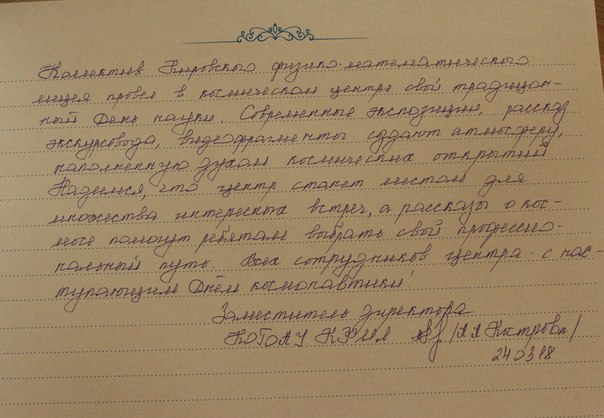 Коллектив Кировского физико-математического
лицея провел в космическом центре свой традицион-
ный День науки. Современные экспозиции, рассказ
экскурсовода, видеофрагменты создают атмосферу,
наполненную духом космических открытий.
Надеемся, что центр станет местом для
множества интересных встреч, а рассказы о кос-
мосе помогут ребятам выбрать свой профессио-
нальный путь. Всех сотрудников центра - с нас-
тупающим Днём космонавтики!
Заместитель директора
КОГОАУ КФМЛ /А А Кострова/
24 03 18